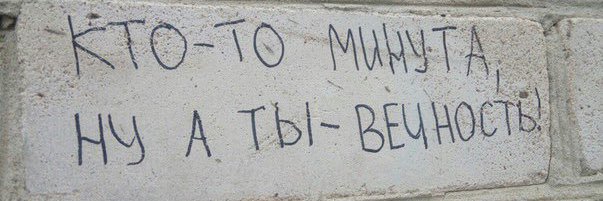 КТО-ТО МИНУТА,
НУ А ТЫ-ВЕЧНОСТЬ!